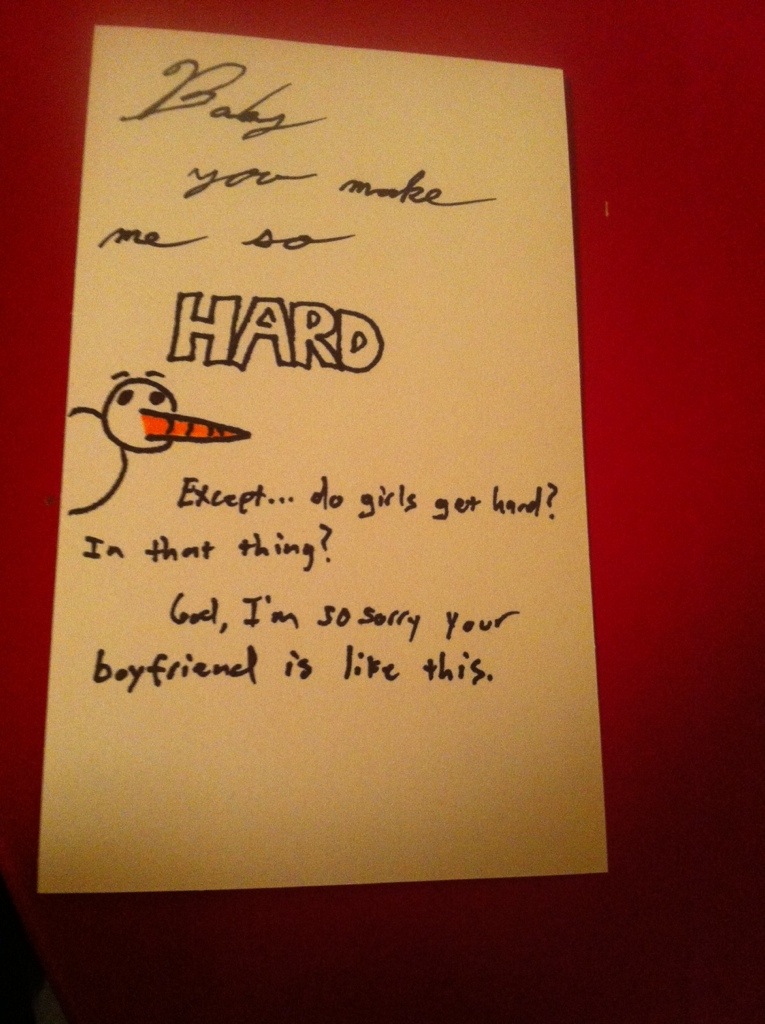 Baby
you make
me so
HARD
Except... do girls get hard?
In that thing?
God, I'm so sorry your
boyfriend is like this.